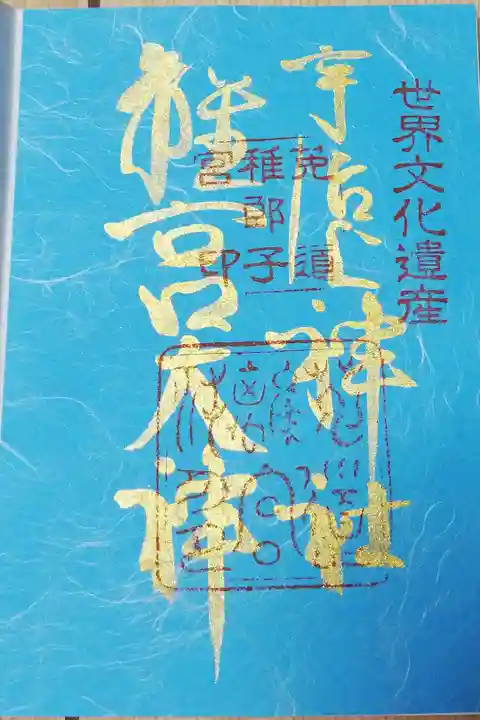 世界文化遺産
宇治上神社
離宮大神
莵道
稚郎子
宮印